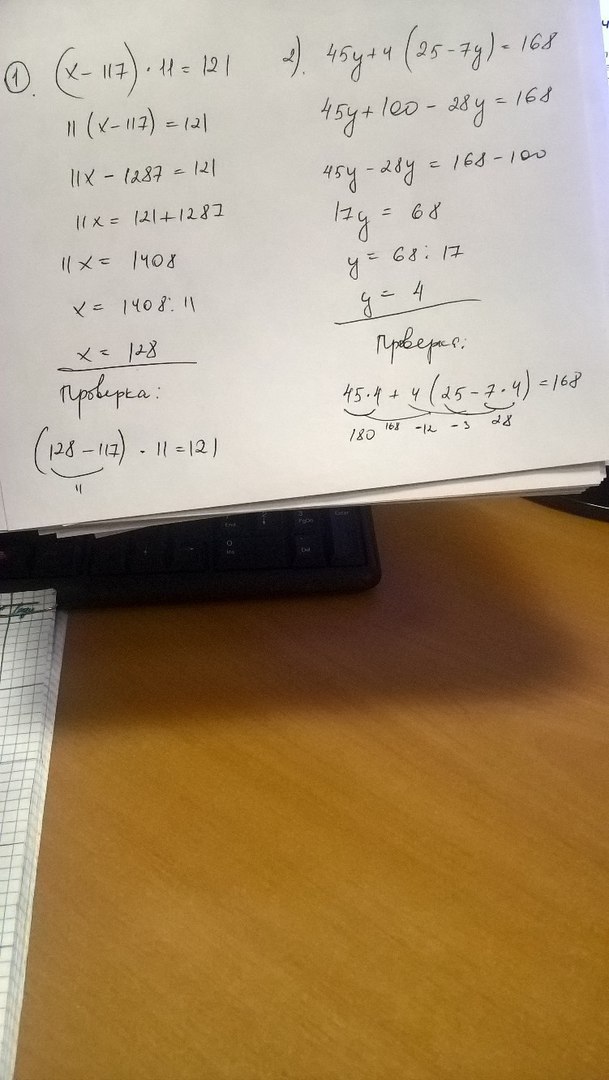 1. (x – 117) · 11 = 121
11 (x – 117) = 121
11x – 1287 = 121
11x = 121 + 1287
11x = 1408
x = 1408 : 11
x = 128
Проверка:
(128 – 117) · 11 = 121
11
2). 45y + 4 (25 – 7y) = 168
45y + 100 – 28y = 168
45y – 28y = 168 – 100
17y = 68
y = 68 : 17
y = 4
Проверка:
45 · 4 + 4 (25 – 7 · 4) = 168
180 168 -12 -3 28